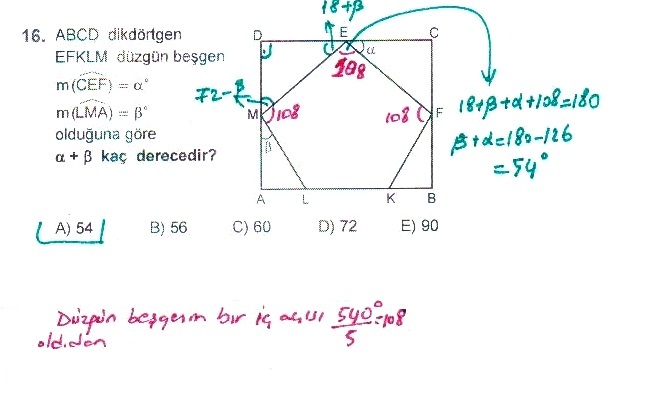 16. ABCD dikdörtgen
EFKLM düzgün beşgen
m(CEF) = α°
m(LMA) = β°
olduğuna göre
α + β kaç derecedir?
18+β
D
E
C
α
108
72-β
M
108
108
F
β
A
L
K
B
18+β+α+108=180
β+α=180-126
=54°
A) 54
B) 56
C) 60
D) 72
E) 90
Düzgün beşgenin bir iç açısı 540°/5=108
old.dan